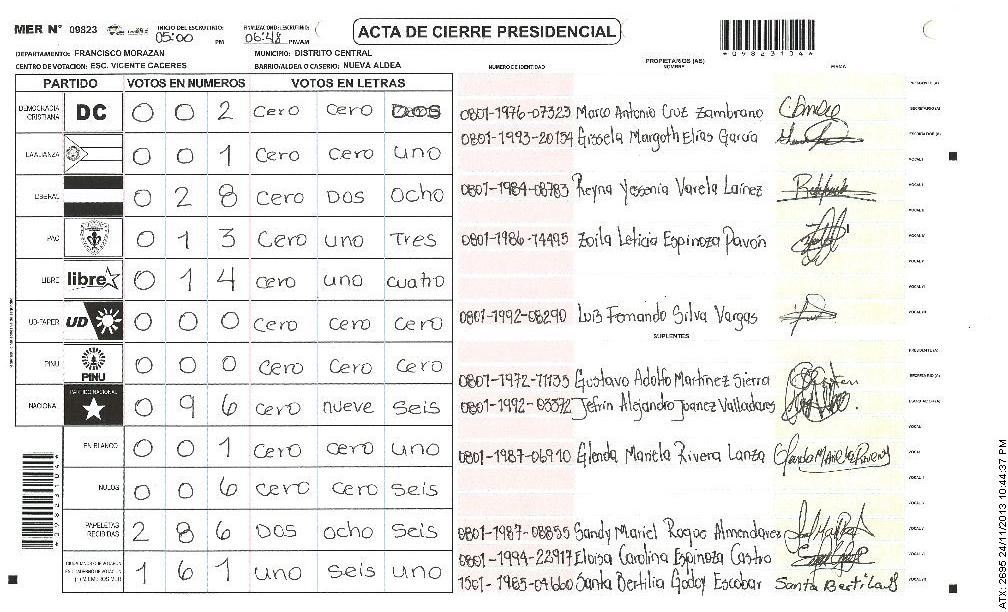 MER N° 09823
INICIO DEL ESCRUTINIO: 05:00 PM
FINALIZACION ESCRUTINIO: 06:48 PM/AM
ACTA DE CIERRE PRESIDENCIAL
*09823104*
DEPARTAMENTO: FRANCISCO MORAZAN
MUNICIPIO: DISTRITO CENTRAL
CENTRO DE VOTACION: ESC. VICENTE CACERES
BARRIO/ALDEA O CASERIO: NUEVA ALDEA
PARTIDO VOTOS EN NUMEROS VOTOS EN LETRAS
DEMOCRACIA CRISTIANA DC 0 0 2 cero cero Dos
LA ALIANZA 0 0 1 cero cero uno
LIBERAL 0 2 8 cero Dos ocho
PAC 0 1 3 cero uno Tres
LIBRE libre 0 1 4 cero uno cuatro
UD-FAPER UD 0 0 0 cero cero cero
PINU PINU 0 0 0 cero cero cero
NACIONAL PARTIDO NACIONAL 0 9 6 cero nueve seis
EN BLANCO 0 0 1 cero cero uno
NULOS 0 0 6 cero cero seis
PAPELETAS RECIBIDAS 2 8 6 Dos ocho seis
1 6 1 uno seis uno
NUMERO DE IDENTIDAD
PROPIETARIOS (AS)
NOMBRE
FIRMA
0801-1976-07323 Marco Antonio Cruz Zambrano
0801-1993-20134 Gissela Margoth Elias García
0801-1984-08783 Reyna Yessenia Varela Laínez
0801-1986-14495 Zoila Leticia Espinoza Pavón
0801-1992-08290 Luis Fernando Silva Vargas
SUPLENTES
0801-1972-11135 Gustavo Adolfo Martínez Sierra
0801-1992-03372 Jefrin Alejandro Juanez Valladares
0801-1987-06910 Glenda Mariela Rivera Lanza
0801-1987-08855 Sandy Mariel Roque Almendarez
0801-1994-22917 Eloisa Carolina Espinoza Castro
1501-1985-01660 Santa Bertilia Godoy Escobar Santa Bertila
ATX: 2695 24/11/2013 10:44:37 PM